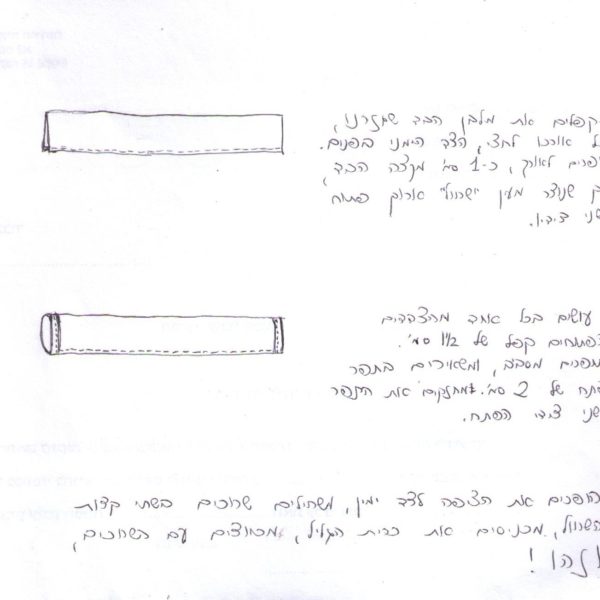 קפלים את מלבן הבד שגזרנו,
אורכו לחצי, הצד הימני בפנים.
לאורך, כ-1 סמ' מקצה הבד,
שנוצר מעין "שרוול" ארוך פתוח
שני צידיו.
עושים בכל אחד מהצדדים
פתוחים קפל של 1/2 1 סמ'.
מסביב, ומשאירים בתפר
של 2 סמ'. מחזקים את התפר
שני צידי הפתח.
הופכים את הציפה לצד ימין, משחילים שרוכים בשתי קצות
השרוול, מכניסים את כרית הגליל, מכווצים עם השרוכים,
וזהו!